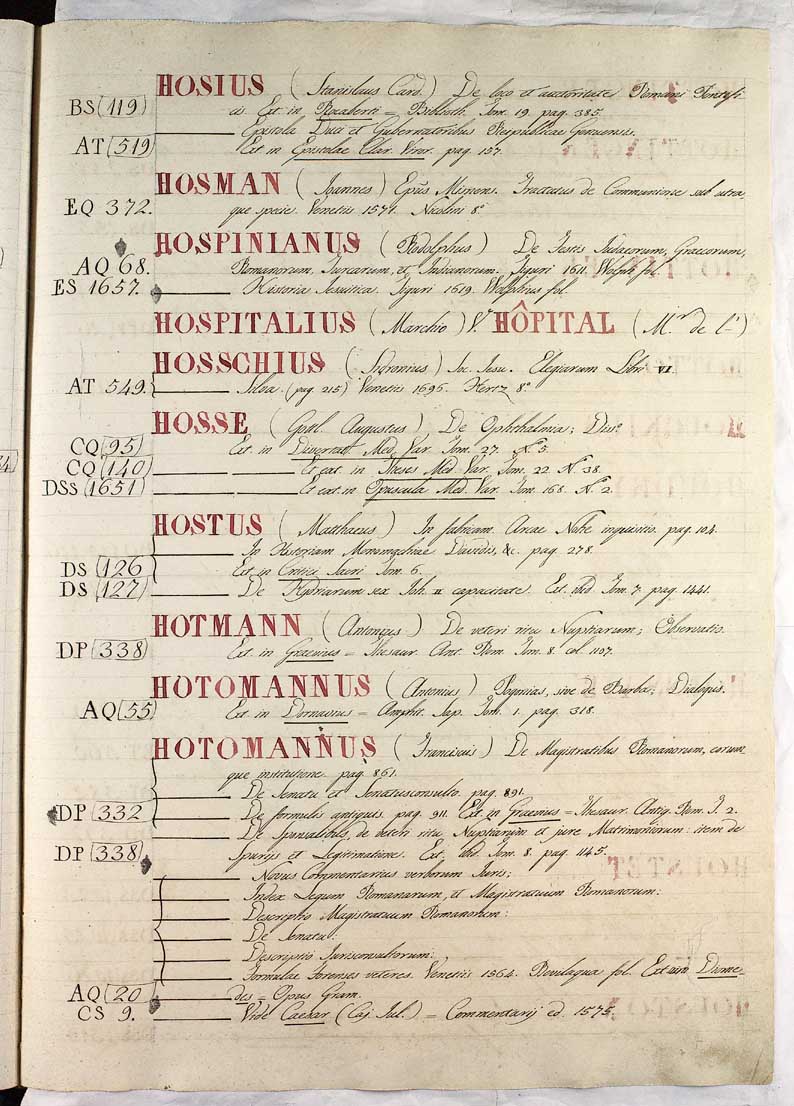 HOSIUS (Stanislaus Card.) De loco et auctoritate Romani Pontifi-
BS (119) cis. Ext. in Rocaberti = Biblioth. Tom. 19. pag. 385.
Epistola Duci et Gubernatoribus Reipublicae Genuensis.
AT (519) Ext. in Epistolae Clar. Viror. pag. 157.
HOSMAN (Joannes) Epũs Mimens. Tractatus de Communione sub utra-
EQ 372. que specie. Venetiis 1571. Nicolini 8º
HOSPINIANUS (Rodolphus) De Festis Judaeorum, Graecorum,
AQ 68. Romanorum, Turcarum, et Indianorum. Tiguri 1611. Wolph. fol.
ES 1657. Historia Jesuitica. Tiguri 1619. Wolphius fol.
HOSPITALIUS (Marchio) V. HÔPITAL (M.r de l')
HOSSCHIUS (Sidronius) Soc. Jesu. Elegiarum Libri VI.
AT 549. Silva. (pag. 215) Venetiis 1696. Hertz 8º
HOSSE (Gottl. Augustus) De Ophthalmia; Diss.º
CQ (95) Ext. in Dissertat. Med. Var. Tom. 27. N.º 5.
CQ (140) Et ext. in Theses Med. Var. Tom. 22. N. 38.
DSs (1651) Et ext. in Opuscula Med. Var. Tom. 168. N.º 2.
HOSTUS (Matthaeus) In fabricam Arcae Nohe inquisitio. pag. 104.
In Historiam Monomachiae Davidis, &c. pag. 278.
DS (126) Ext. in Critici Sacri Tom. 6.
DS (127) De Hydriarum sex Joh. II capacitate. Ext. ibid. Tom. 7. pag. 1441.
HOTMANN (Antonius) De veteri ritu Nuptiarum; Observatio.
DP (338) Ext. in Graevius = Thesaur. Ant. Rom. Tom. 8. col. 1107.
HOTOMANNUS (Antonius) Pogonias, sive de Barba; Dialogus.
AQ (55) Ext. in Dornavius = Amphit. Sap. Tom. 1. pag. 318.
HOTOMANNUS (Franciscus) De Magistratibus Romanorum, eorum-
que institutione. pag. 861.
De Senatu et Senatusconsulto. pag. 891.
DP (332) De formulis antiquis. pag. 911. Ext. in Graevius = Thesaur. Antiq. Rom. T. 2.
De Sponsalibus, de veteri ritu Nuptiarum et jure Matrimoniorum: item de
DP (338) Spurijs et Legitimatione. Ext. ibid. Tom. 8. pag. 1145.
Novus Commentarius verborum Juris;
Index Legum Romanarum, et Magistratuum Romanorum:
Descriptio Magistratuum Romanorum:
De Senatu.
Descriptio Jurisconsultorum:
Formulae Forenses veteres. Venetiis 1564. Bevilaqua fol. Ext. cum Diome-
AQ (20) des = Opus Gram.
CS 9. Vide Caesar (Caj. Jul.) = Commentarij ed. 1575.